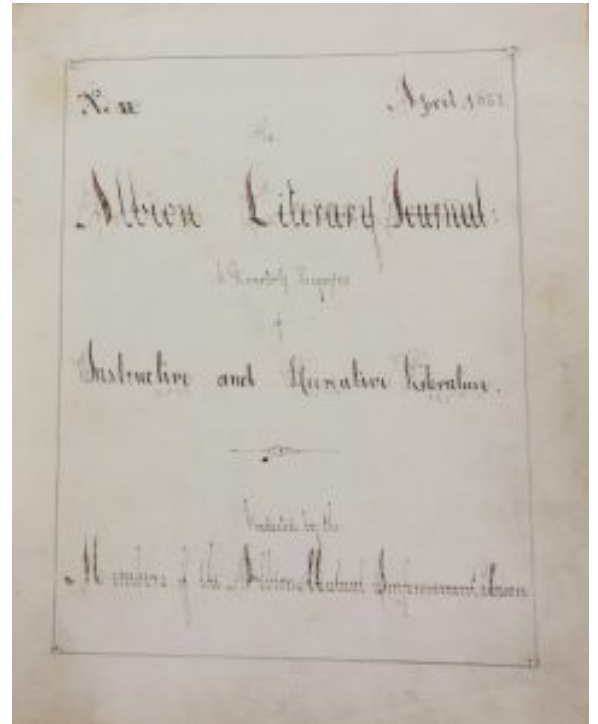 No. II
April, 186
The
Albion Literary Journal:
A Quarterly Magazine
of
Instructive and Recreative Literature.
Conducted by the
Members of the Albion Mutual Improvement Union